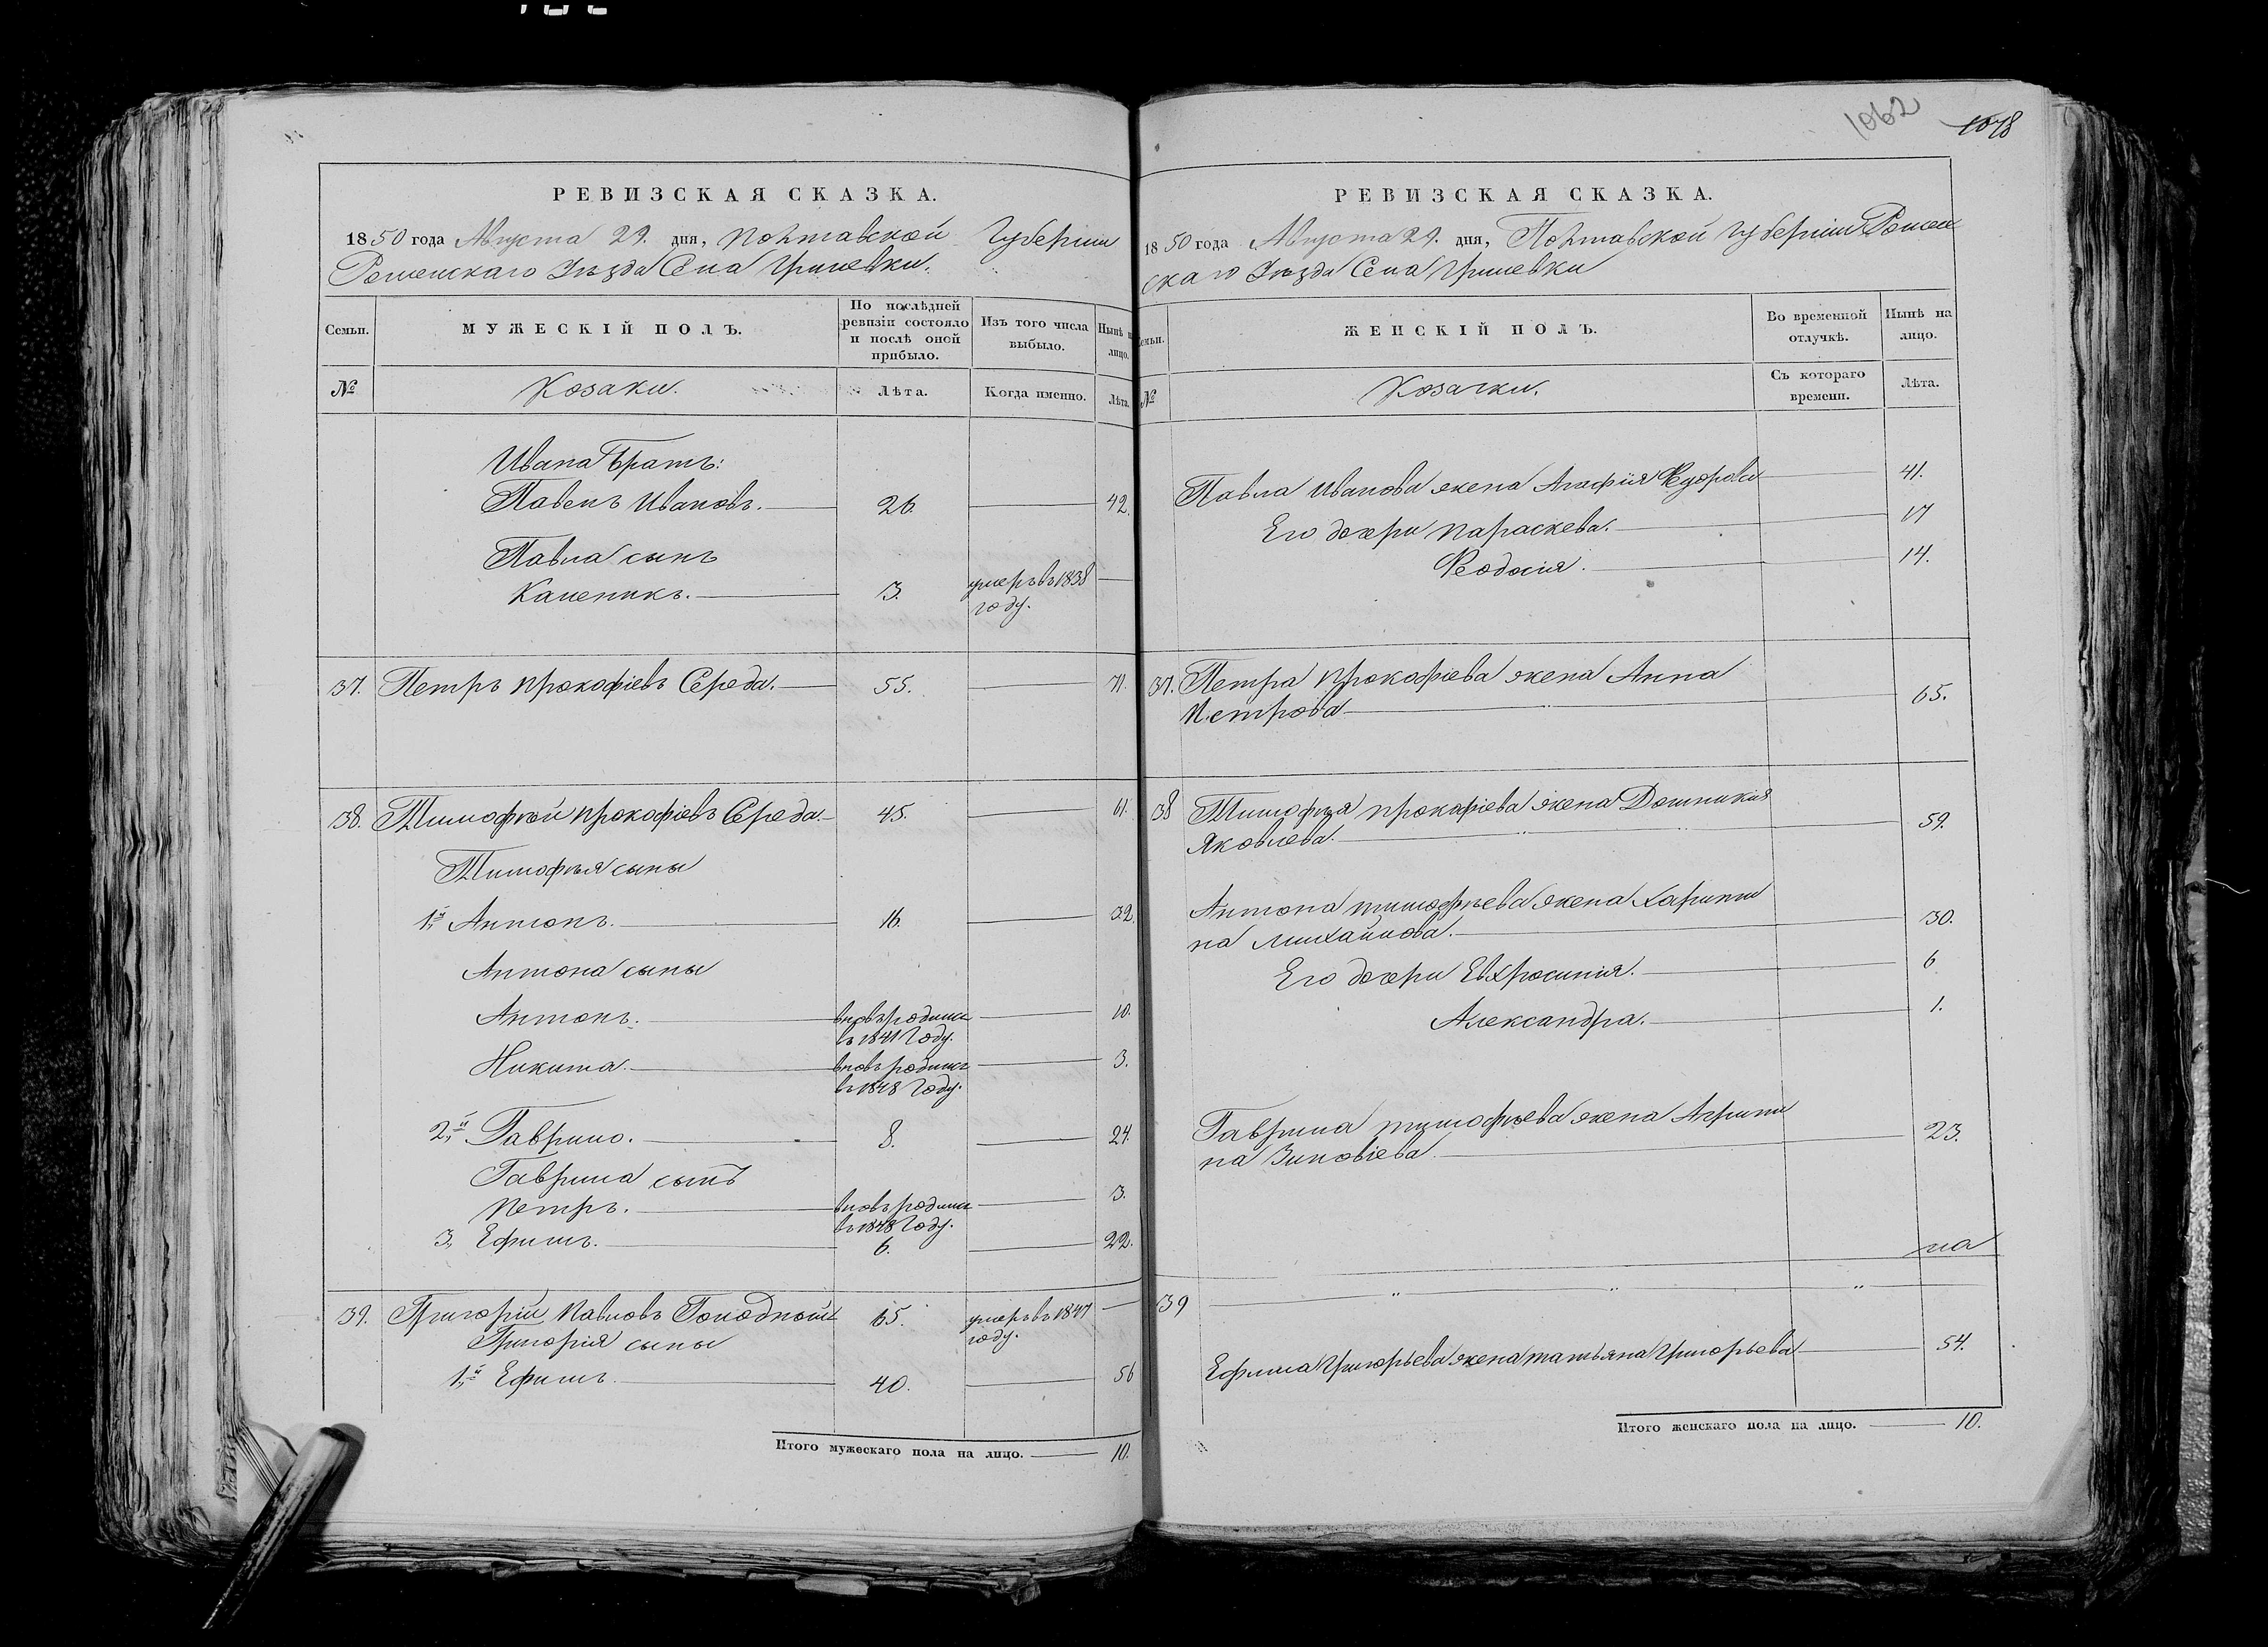 РЕВИЗСКАЯ СКАЗКА.
1850 года Августа 29. дня, Полтавской Губерніи
Роменскаго Уѣзда Села Гриневки.
Семьи.
МУЖЕСКІЙ ПОЛЪ.
По послѣдней ревизіи состояло и послѣ оной прибыло.
Изъ того числа выбыло.
Нынѣ на лицо.
№
Козаки.
Лѣта.
Когда именно.
Лѣта.
Ивана Братъ:
Павелъ Ивановъ. 26. 42.
Павла сынъ
Каленикъ. 3. умеръ въ 1838 году.
37. Петръ Прокофіевъ Середа. 55. 71.
38. Тимофѣй Прокофіевъ Середа. 45. 61.
Тимофѣя сыны
1й Антонъ. 16. 32
Антона сыны
Антонъ. вновь родился въ 1841 году. 10.
Никита. вновь родился въ 1848 году. 3.
2,й Гаврило. 8. 24.
Гаврила сынъ
Петръ. вновь родился въ 1848 году. 3.
3, Ефимъ. 6. 22.
39. Григорій Павловъ Голодный 65. умеръ въ 1847 году.
Григорія сыны
1,й Ефимъ. 40. 56
Итого мужескаго пола на лицо. 10.
1062
1078
РЕВИЗСКАЯ СКАЗКА.
1850 года Августа 29. дня, Полтавской Губерніи Ромен
скаго Уѣзда Села Гриневки
Семьи.
ЖЕНСКІЙ ПОЛЪ.
Во временной отлучкѣ.
Нынѣ на лицо.
№
Козачки.
Съ котораго времени.
Лѣта.
Павла Иванова жена Агафія Федорова 41.
Его дочери Параскева. 17
Феодосія. 14.
37. Петра Прокофіева жена Анна
Петрова 65.
38 Тимофѣя Прокофіева жена Домникія
Яковлева. 59.
Антона Тимофѣева жена Харити
на Михайлова. 30.
Его дочери Евхросинія. 6
Александра. 1.
Гаврила Тимофѣева жена Агрипи
на Зиновіева. 23.
39
Ефима Григорьева жена Татьяна Григорьева 54.
Итого женскаго пола на лицо. 10.